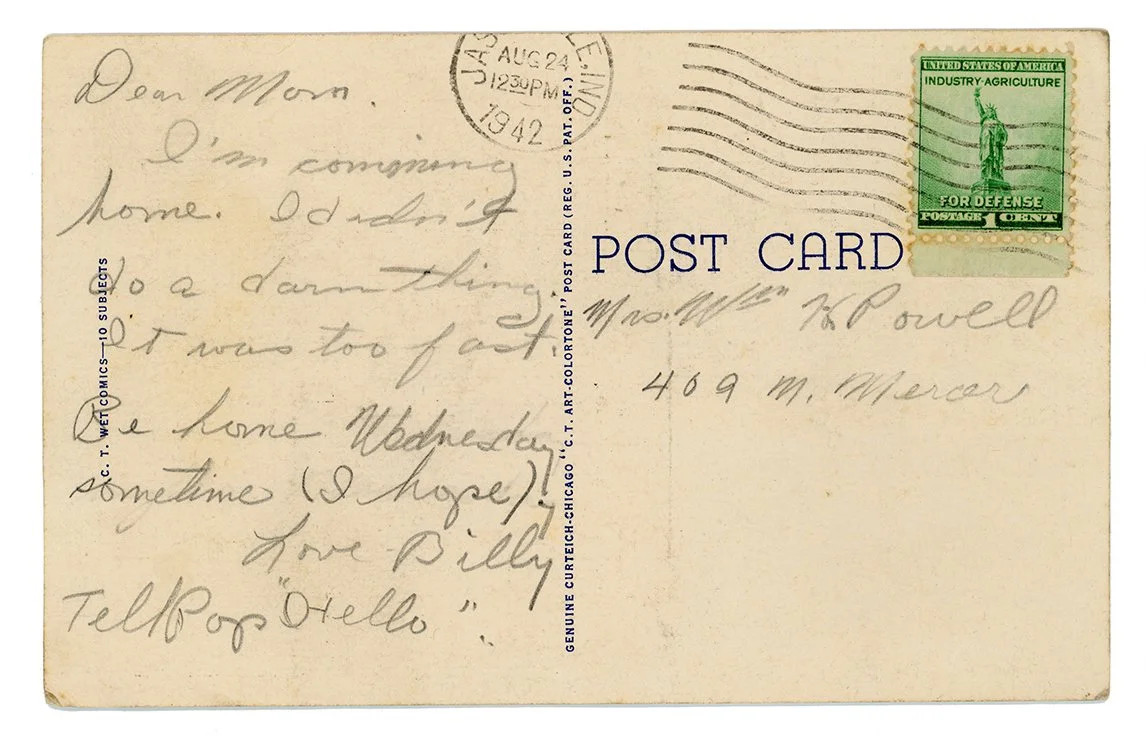 Dear Mom.
I'm comming
home. I didn't
do a darn thing.
It was too fast.
Be home Wednesday
sometime (I hope).
Love Billy
Tell Pop "Hello".
C. T. WET COMICS—10 SUBJECTS
AUG 24
12 30 PM
1942
IND
GENUINE CURTEICH-CHICAGO "C. T. ART-COLORTONE" POST CARD (REG. U. S. PAT. OFF.)
UNITED STATES OF AMERICA
INDUSTRY-AGRICULTURE
FOR DEFENSE
POSTAGE 1 CENT
POST CARD
Mrs. Wm H Powell
409 M. Mercer